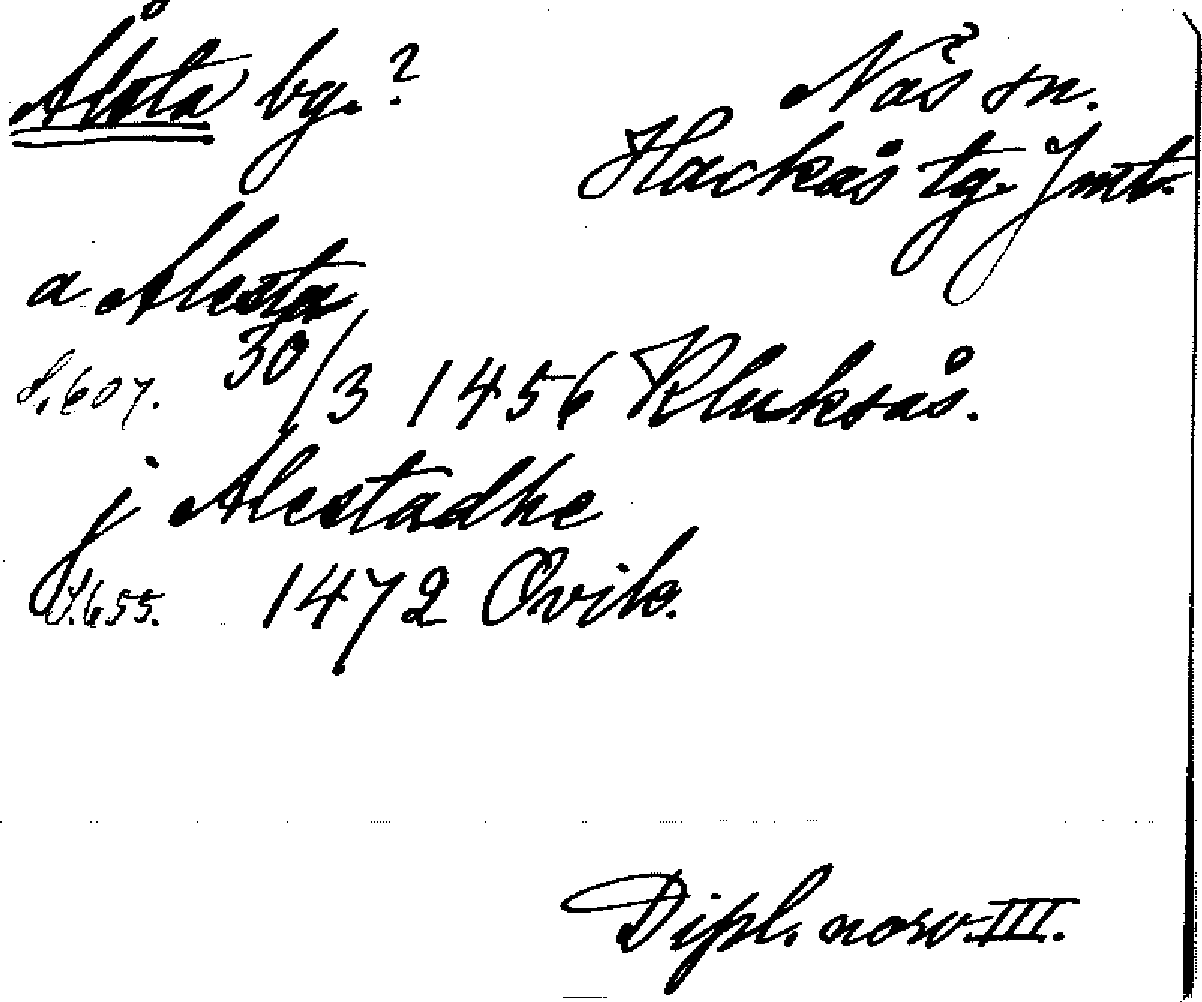 Ålsta bg.?
Näs sn.
Hackås tg. Jmt.
a Alesta
S. 607. 30/3 1456 Kluksås.
j Alestadhe
S. 655. 1472 Ovik.
Dipl. norv. III.